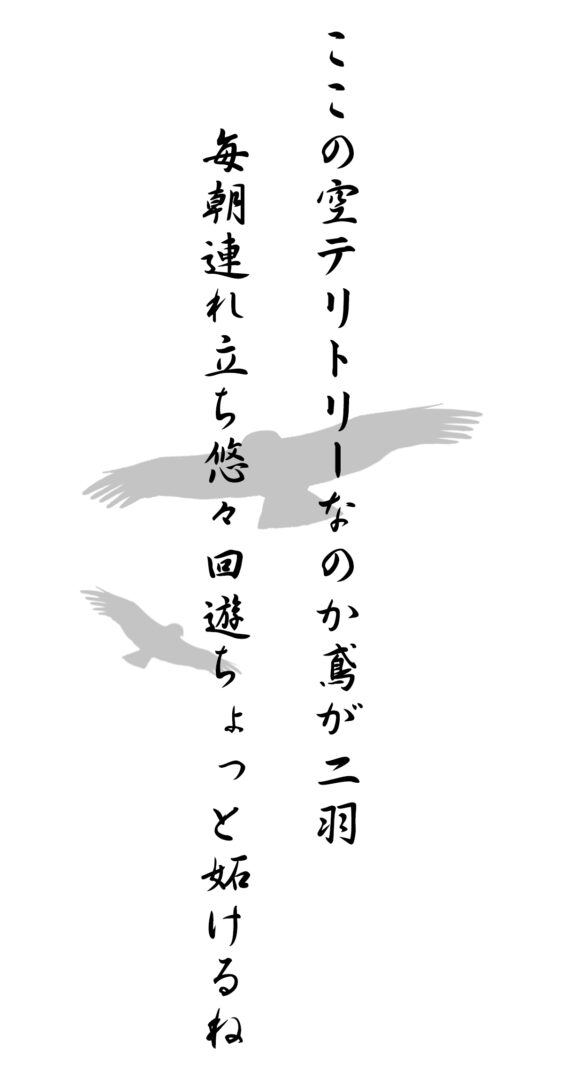 ここの空テリトリーなのか鳶が二羽
毎朝連れ立ち悠々回遊ちょっと妬けるね